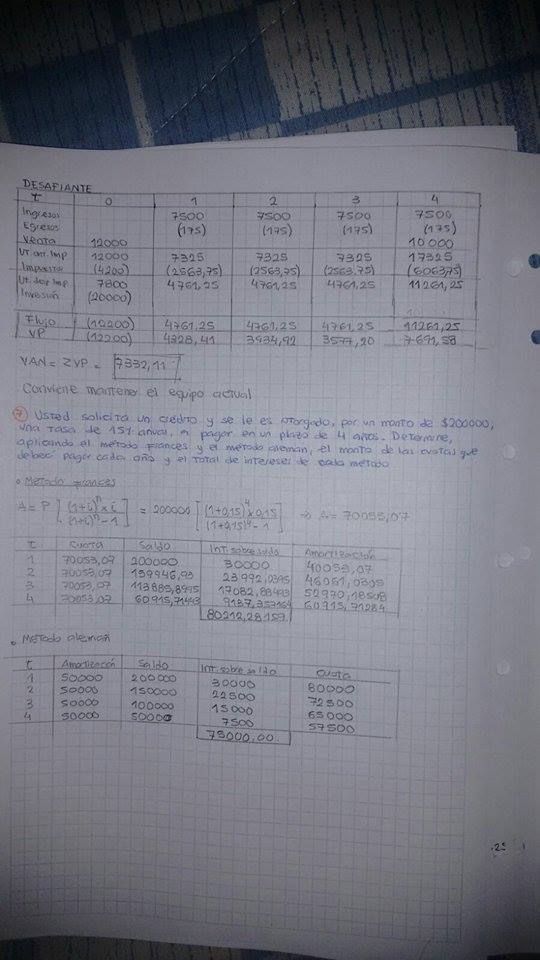 DESAFIANTE
t 0 1 2 3 4
Ingresos 7500 7500 7500 7500
Egresos (175) (175) (175) (175)
Venta 12000 10 000
Ut. ant. Imp 12000 7325 7325 7325 17325
Impuesto (4200) (2563,75) (2563,75) (2563,75) (6063,75)
Ut. desp. Imp 7800 4761,25 4761,25 4761,25 11261,25
Inversión (20000)
Flujo (12200) 4761,25 4761,25 4761,25 11261,25
VP (12200) 4328,41 3934,92 3577,20 7691,58
VAN = ΣVP = 7332,11
Conviene mantener el equipo actual
7 Usted solicita un crédito y se le es otorgado, por un monto de $200000,
una tasa de 15% anual, a pagar en un plazo de 4 años. Determine,
aplicando el método francés y el método alemán, el monto de las cuotas que
deberá pagar cada año y el total de intereses de cada método
• Método francés
A = P [(1+i)^n × i / (1+i)^n - 1] = 200000 [(1+0,15)^4 × 0,15 / (1+0,15)^4 - 1] ⇒ A = 70053,07
t Cuota Saldo Int. sobre saldo Amortización
1 70053,07 200000 30000 40053,07
2 70053,07 159946,93 23992,0395 46061,0305
3 70053,07 113885,8995 17082,88493 52970,18508
4 70053,07 60915,71443 9137,357164 60915,71284
80212,28159
• Método alemán
t Amortización Saldo Int. sobre saldo Cuota
1 50000 200000 30000 80000
2 50000 150000 22500 72500
3 50000 100000 15000 65000
4 50000 50000 7500 57500
75000,00